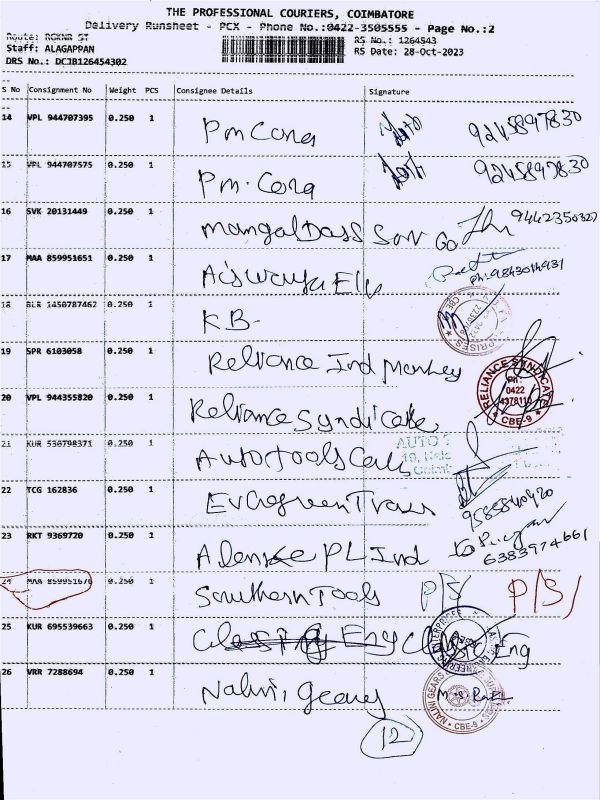 THE PROFESSIONAL COURIERS, COIMBATORE
Delivery Runsheet - PCX - Phone No.:0422-3505555 - Page No.:2
Route: RGKNR ST RS No.: 1264543
Staff: ALAGAPPAN RS Date: 28-Oct-2023
DRS No.: DCJB126454302
S No Consignment No Weight PCS Consignee Details Signature
14 VPL 944707395 0.250 1 Pm Cong 9245897830
15 VPL 944707575 0.250 1 Pm. Cong 9245897830
16 SVK 20131449 0.250 1 Mangal Dass Son Go 9442350327
17 MAA 859951651 0.250 1 Ph: 9843014931
18 BLR 1450787462 0.250 1 KB-
19 SPR 6103058 0.250 1 Reliance Ind
20 VPL 944355820 0.250 1 Reliance Syndicate
RELIANCE SYNDICATE
Ph:
0422
4378110
CBE-9
21 KUR 530798371 0.250 1 Auto Tools
AUTO T
22 TCG 162836 0.250 1 Evergreen 9585840420
23 RKT 9369720 0.250 1 PL Ind 6383974661
24 MAA 859951676 0.250 1 Southern Tools P/S P/S/
25 KUR 695539663 0.250 1 Eng
26 VRR 7288694 0.250 1 Nalini Gears
NALINI GEARS
CBE-9
12